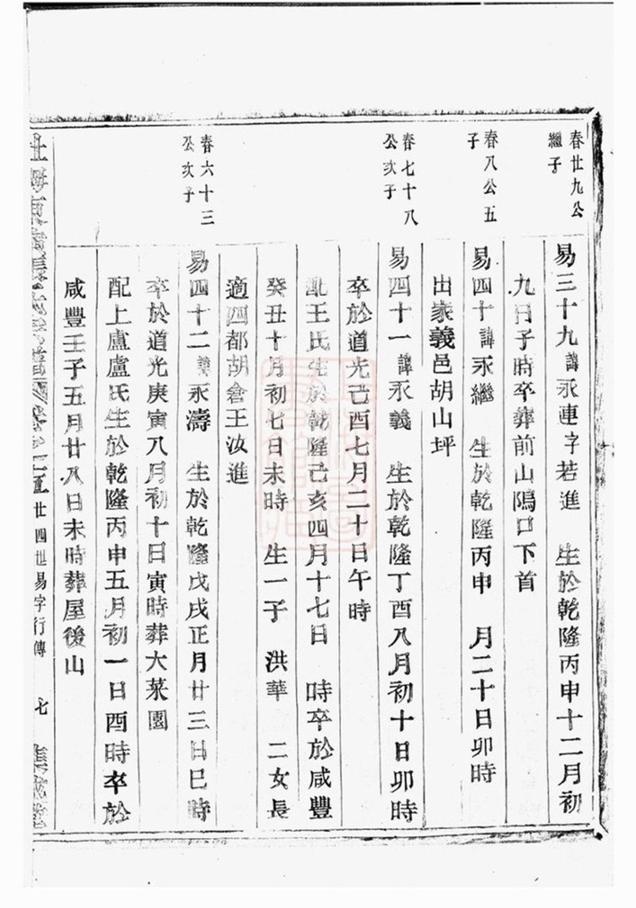 春廿九公
繼子
易三十九諱永連字若進 生於乾隆丙申十二月初
九日子時卒葬前山隝口下首
春八公五
子
易四十諱永繼 生於乾隆丙申 月二十日卯時
出家義邑胡山坪
春七十八
公次子
易四十一諱永義 生於乾隆丁酉八月初十日卯時
卒於道光己酉七月二十日午時
配王氏生於乾隆己亥四月十七日 時卒於咸豐
癸丑十月初七日未時 生一子 洪華 二女長
適四都胡倉王汝進
春六十三
公次子
易四十二諱永濤 生於乾隆戊戌正月廿三日巳時
卒於道光庚寅八月初十日寅時葬大菜園
配上盧盧氏生於乾隆丙申五月初一日酉時卒於
咸豐壬子五月廿八日未時葬屋後山
廿四世易字行傳
七